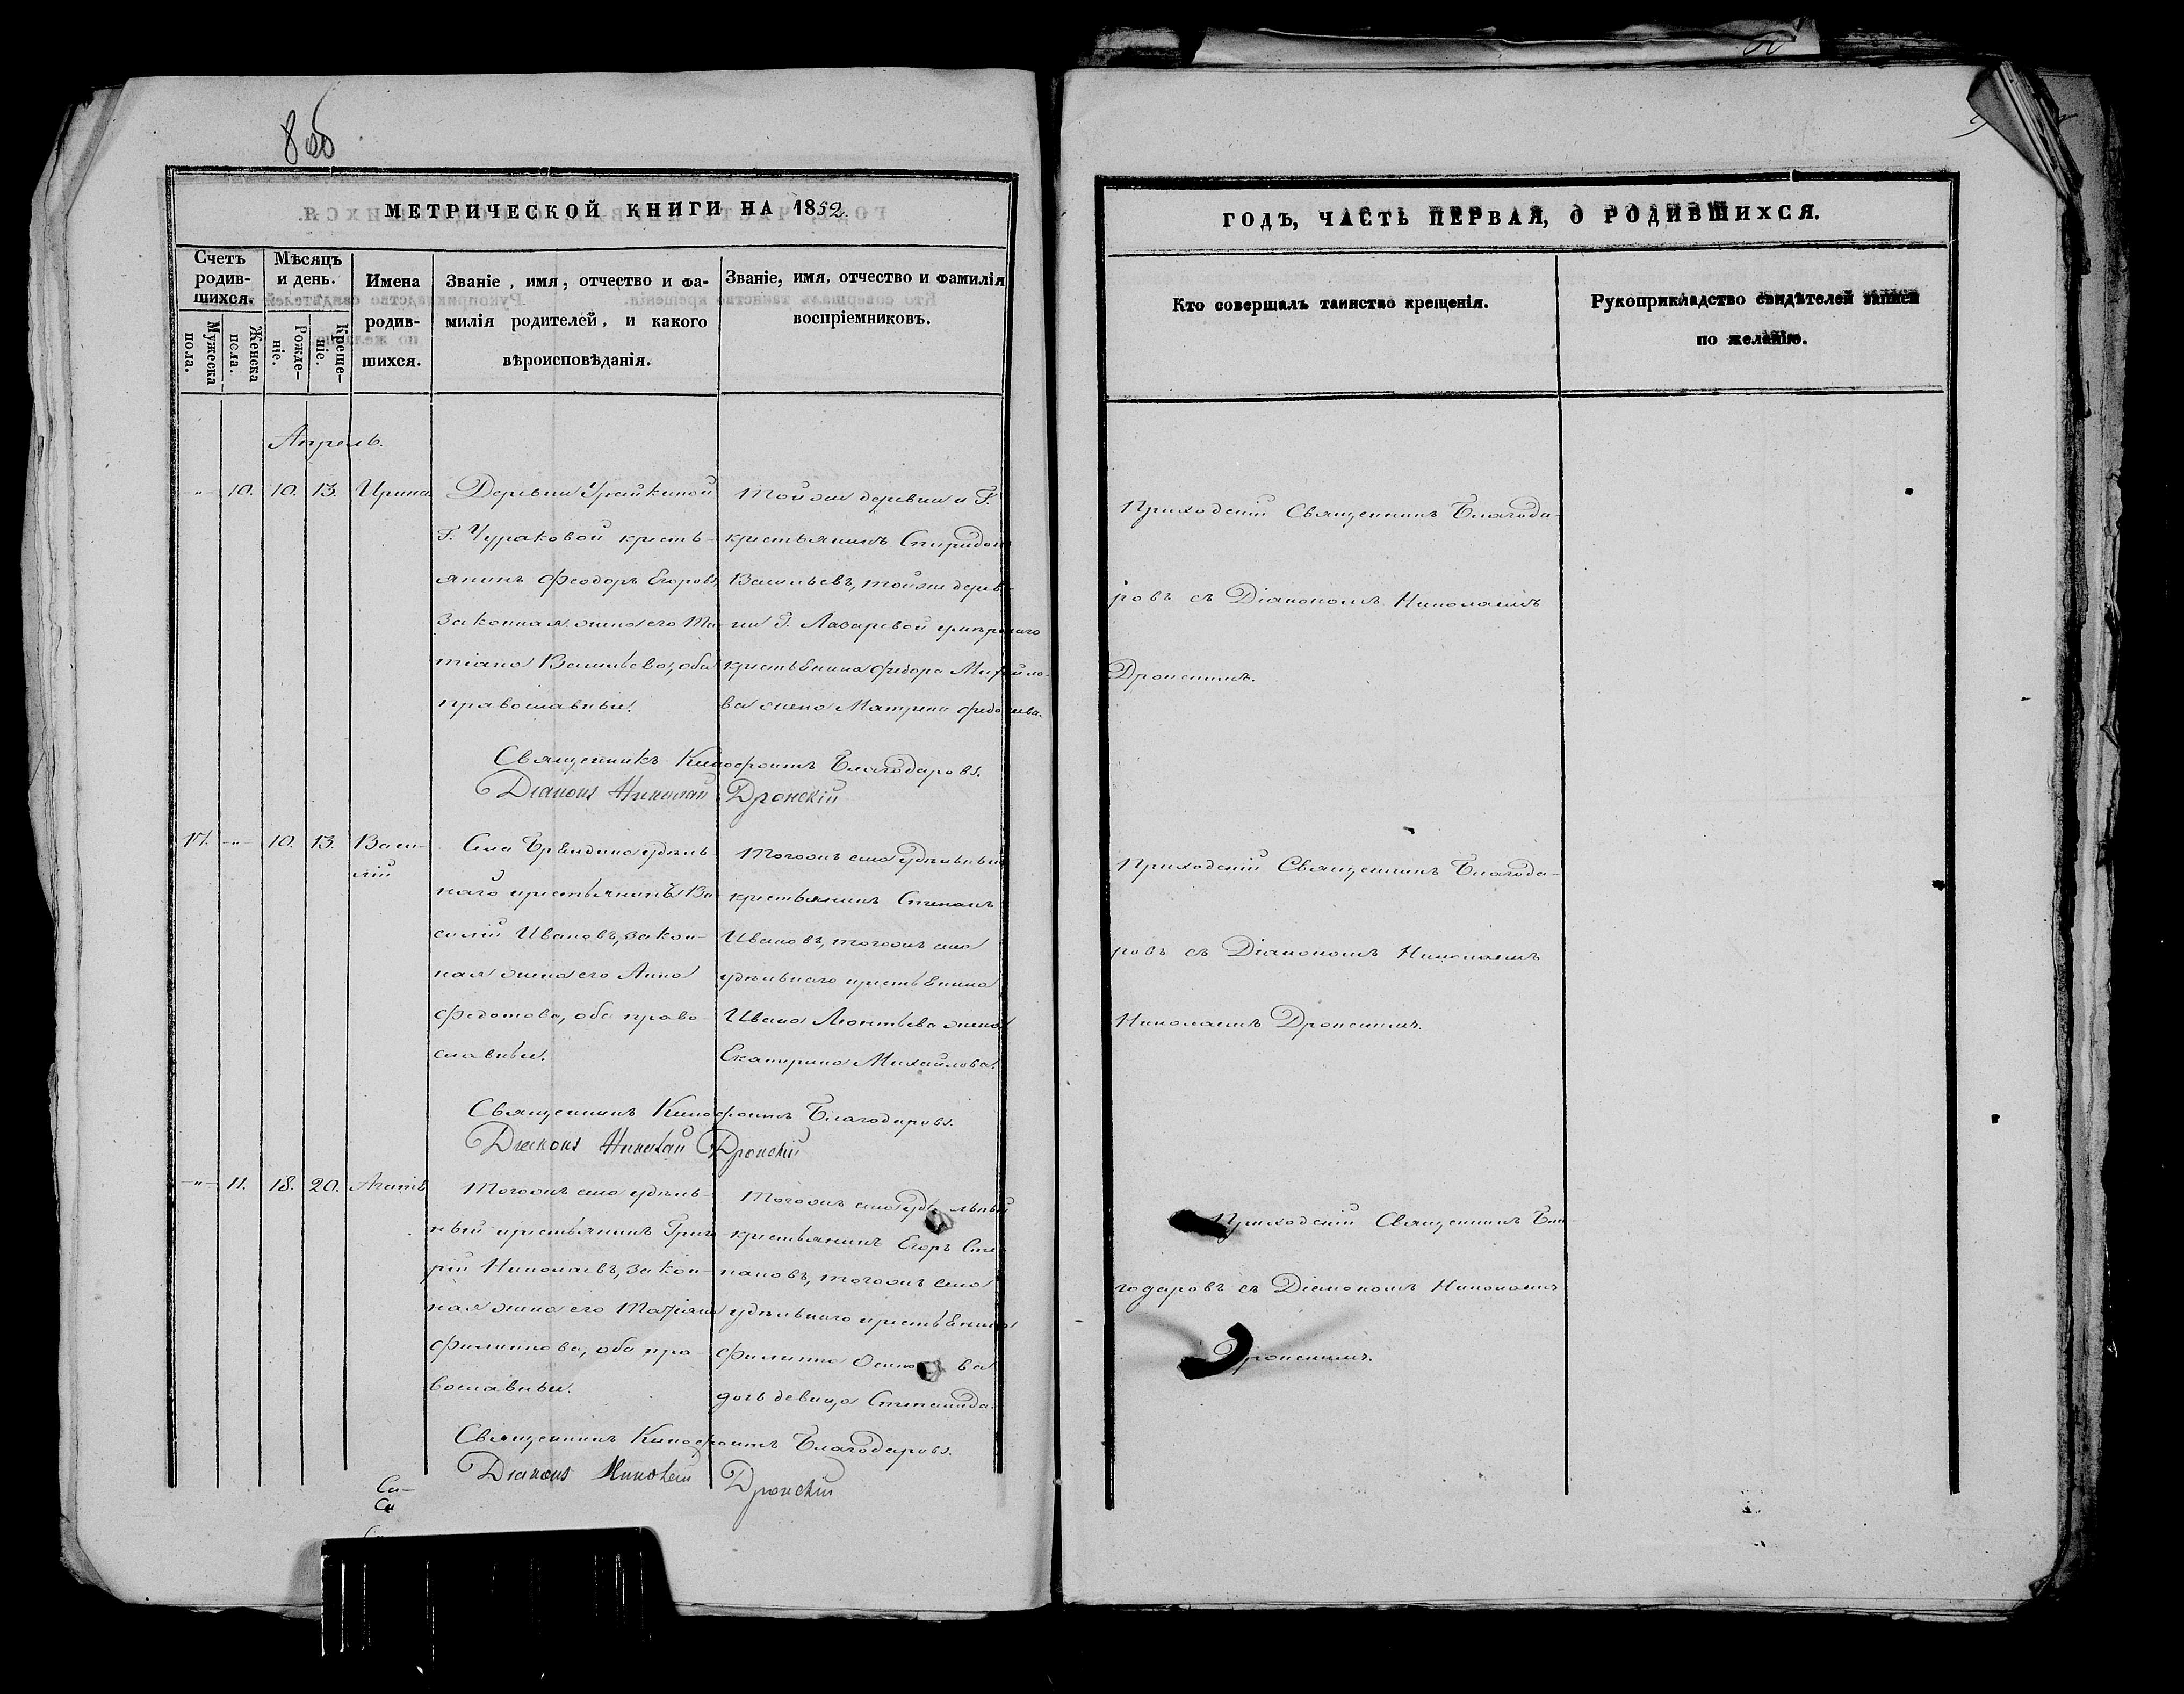 8 об
МЕТРИЧЕСКОЙ КНИГИ НА 1852.
Счетъ родив-шихся.
Мужеска пола.
Женска пола.
Мѣсяцъ и день.
Рожде-ніе.
Креще-ніе.
Имена родив-шихся.
Званіе, имя, отчество и фа-
милія родителей, и какого
вѣроисповѣданія.
Званіе, имя, отчество и фамилія
воспріемниковъ.
Апрель.
-"- 10. 10. 13. Ирина
Деревни Урайкиной
Г. Чураковой кресть-
янинъ Феодоръ Егоровъ,
законная жена его Та-
тіана Васильева, оба
православные.
Той же деревни и Г.
крестьянинъ Спиридонъ
Васильевъ, той же дерев-
ни Г. Лазаревой умершаго
крестьянина Федора Михайло-
ва жена Матрена
Священникъ Кинофонтъ Благодаровъ.
Діаконъ Николай Дронскій
-"- 10. 13. Васи-
лій
Села удѣль-
наго крестьянинъ Ва-
силій Ивановъ, закон-
ная жена его Анна
Федотова, оба право-
славные.
Тогожъ села удѣльный
крестьянинъ Степанъ
Ивановъ, тогожъ села
удѣльнаго крестьянина
Ивана Леонтьева жена
Екатерина Михайлова.
Священникъ Кинофонтъ Благодаровъ.
Діаконъ Николай Дронскій
-"- 11. 18. 20. Агапія
Тогожъ села удѣль-
ный крестьянинъ Григо-
рій Николаевъ, закон-
ная жена его Татіана
Филиппова, оба пра-
вославные.
Тогожъ села удѣльный
крестьянинъ Егоръ Сте-
пановъ, тогожъ села
удѣльнаго крестьянина
Филиппа Осипова
дочь девица Степанида.
Священникъ Кинофонтъ Благодаровъ.
Діаконъ Николай Дронскій
ГОДЪ, ЧАСТЬ ПЕРВАЯ, О РОДИВШИХСЯ.
Кто совершалъ таинство крещенія.
Рукоприкладство свидѣтелей записи
по желанію.
Приходскій Священникъ Благода-
ровъ съ Діакономъ Николаемъ
Дронскимъ.
Приходскій Священникъ Благода-
ровъ съ Діакономъ Николаемъ
Николаемъ Дронскимъ.
Приходскій Священникъ Бла-
годаровъ съ Діакономъ Николаемъ
Дронскимъ.